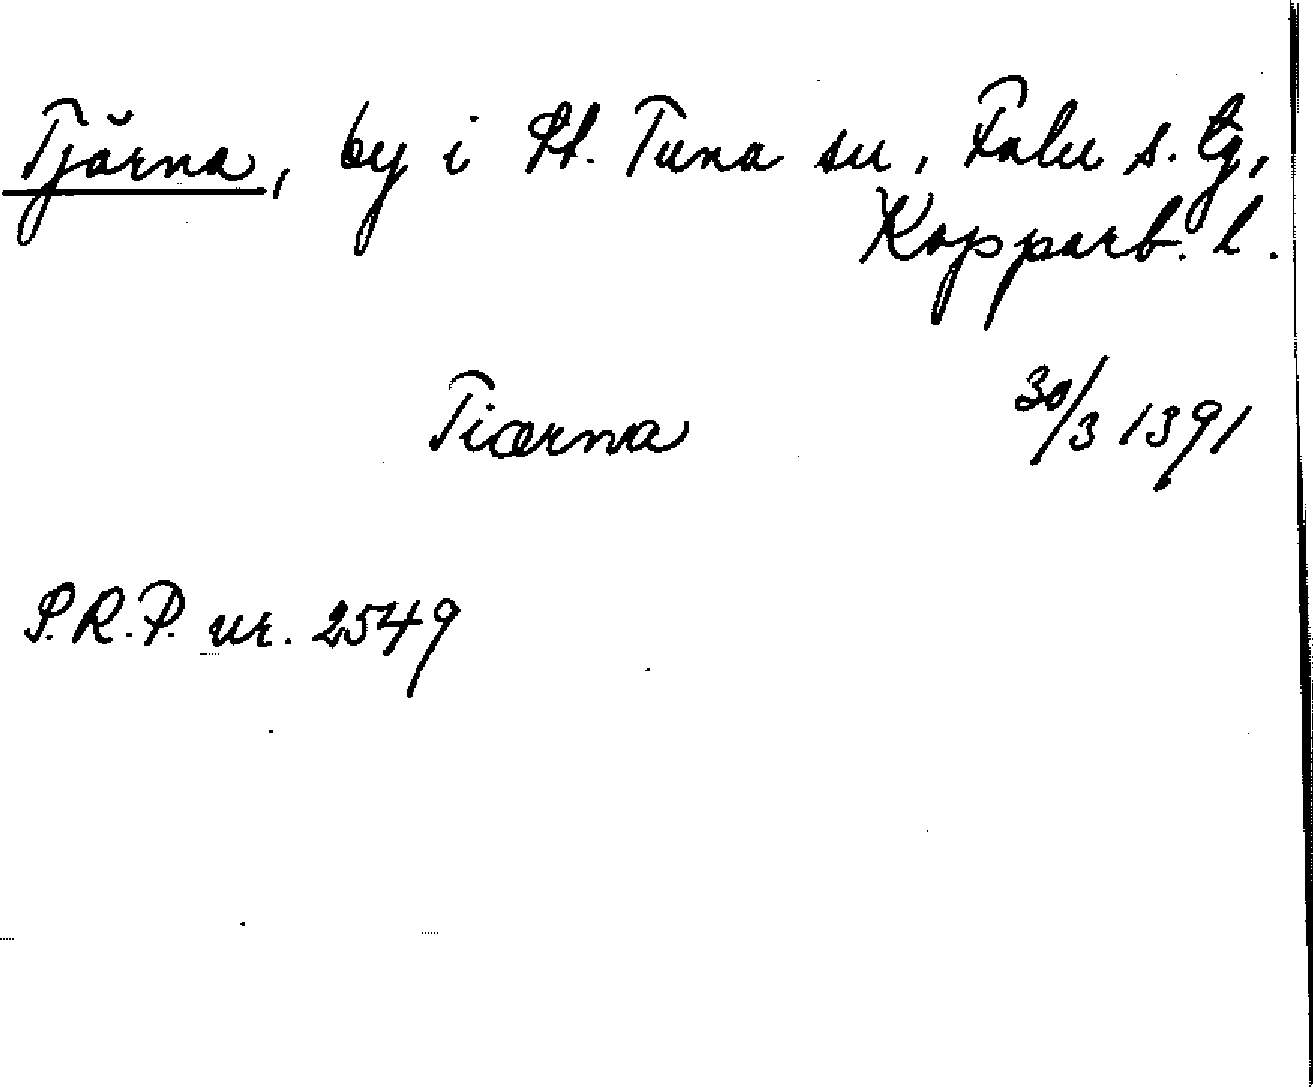 Tjärna, by i St. Tuna sn, Falu s. tg,
Kopparb. l.
Tiærna 30/3 1391
S.R.P. nr. 2549